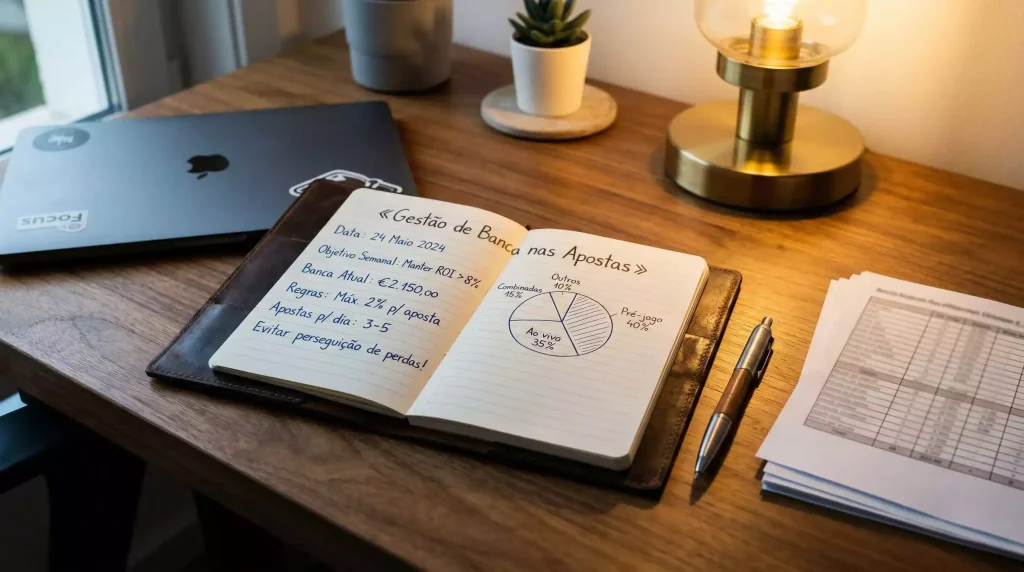 «Gestão de Banca nas Apostas»
Data: 24 Maio 2024
Objetivo Semanal: Manter ROI > 8%
Banca Atual: €2.150,00
Regras: Máx. 2% p/ aposta
Apostas p/ dia: 3-5
Evitar perseguição de perdas!
Outros
10%
Combinadas
15%
Pré-jogo
40%
Ao vivo
35%
Focus